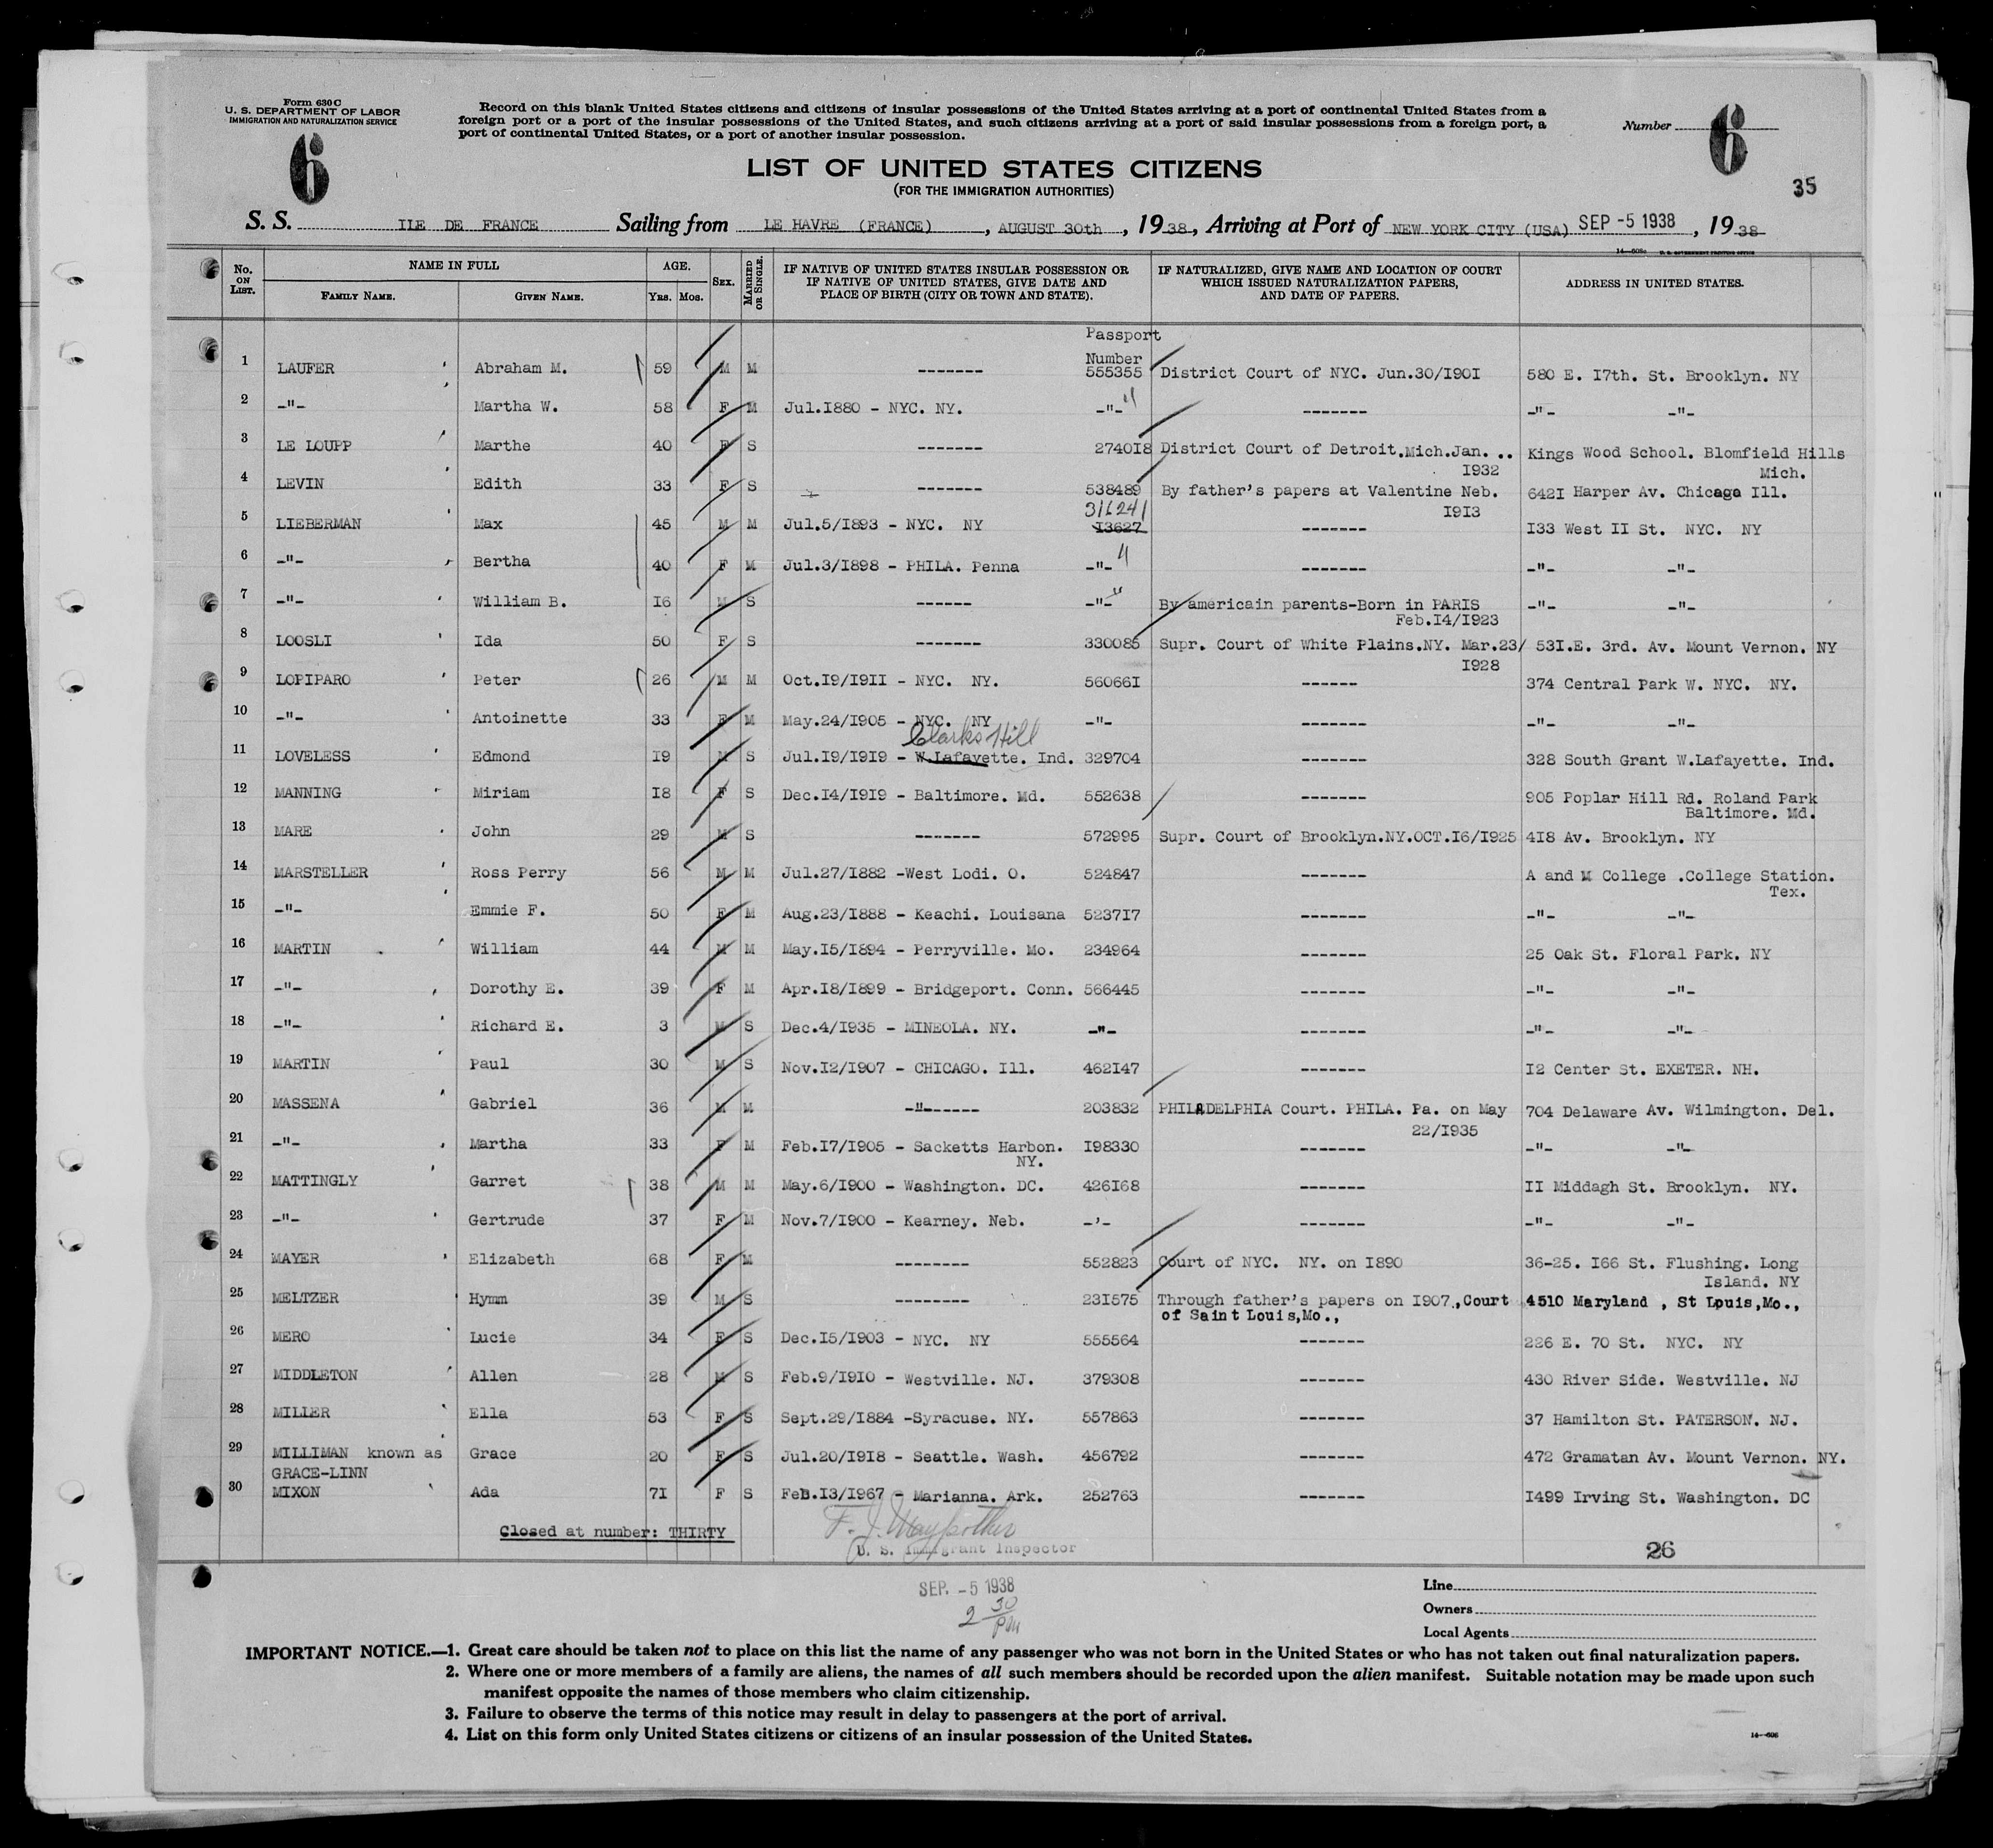 Form 630 C
U. S. DEPARTMENT OF LABOR
IMMIGRATION AND NATURALIZATION SERVICE
6
Record on this blank United States citizens and citizens of insular possessions of the United States arriving at a port of continental United States from a
foreign port or a port of the insular possessions of the United States, and such citizens arriving at a port of said insular possessions from a foreign port, a
port of continental United States, or a port of another insular possession.
Number 6
LIST OF UNITED STATES CITIZENS
(FOR THE IMMIGRATION AUTHORITIES)
35
S. S. ILE DE FRANCE Sailing from LE HAVRE (FRANCE), AUGUST 30th, 1938, Arriving at Port of NEW YORK CITY (USA) SEP -5 1938, 1938
No. ON LIST. NAME IN FULL FAMILY NAME. GIVEN NAME. AGE. YRS. MOS. SEX. MARRIED OR SINGLE. IF NATIVE OF UNITED STATES INSULAR POSSESSION OR IF NATIVE OF UNITED STATES, GIVE DATE AND PLACE OF BIRTH (CITY OR TOWN AND STATE). IF NATURALIZED, GIVE NAME AND LOCATION OF COURT WHICH ISSUED NATURALIZATION PAPERS, AND DATE OF PAPERS. ADDRESS IN UNITED STATES.
Passport
Number
1 LAUFER Abraham M. 59 M M ------- 555355 District Court of NYC. Jun.30/I90I 580 E. I7th. St. Brooklyn. NY
2 -"- Martha W. 58 F M Jul.I880 - NYC. NY. -"- " ------- -"- -"-
3 LE LOUPP Marthe 40 F S ------- 2740I8 District Court of Detroit.Mich.Jan. .. Kings Wood School. Blomfield Hills
I932 Mich.
4 LEVIN Edith 33 F S ------- 538489 By father's papers at Valentine Neb. 642I Harper Av. Chicago Ill.
316241 I9I3
5 LIEBERMAN Max 45 M M Jul.5/I893 - NYC. NY I3627 ------- I33 West II St. NYC. NY
6 -"- Bertha 40 F M Jul.3/I898 - PHILA. Penna -"- " ------- -"- -"-
7 -"- William B. I6 M S ------ -"- " By americain parents-Born in PARIS -"- -"-
Feb.I4/I923
8 LOOSLI Ida 50 F S ------- 330085 Supr. Court of White Plains.NY. Mar.23/ 53I.E. 3rd. Av. Mount Vernon. NY
I928
9 LOPIPARO Peter 26 M M Oct.I9/I9II - NYC. NY. 56066I ------ 374 Central Park W. NYC. NY.
10 -"- Antoinette 33 F M May.24/I905 - NYC. NY -"- ------- -"- -"-
Clarks Hill
11 LOVELESS Edmond I9 M S Jul.I9/I9I9 - W.Lafayette. Ind. 329704 ------- 328 South Grant W.Lafayette. Ind.
12 MANNING Miriam I8 F S Dec.I4/I9I9 - Baltimore. Md. 552638 ------- 905 Poplar Hill Rd. Roland Park
Baltimore. Md.
13 MARE John 29 M S ------- 572995 Supr. Court of Brooklyn.NY.OCT.I6/I925 4I8 Av. Brooklyn. NY
14 MARSTELLER Ross Perry 56 M M Jul.27/I882 -West Lodi. O. 524847 ------- A and M College .College Station.
Tex.
15 -"- Emmie F. 50 F M Aug.23/I888 - Keachi. Louisana 5237I7 ------- -"- -"-
16 MARTIN William 44 M M May.I5/I894 - Perryville. Mo. 234964 ------- 25 Oak St. Floral Park. NY
17 -"- Dorothy E. 39 F M Apr.I8/I899 - Bridgeport. Conn. 566445 ------- -"- -"-
18 -"- Richard E. 3 M S Dec.4/I935 - MINEOLA. NY. -"- ------- -"- -"-
19 MARTIN Paul 30 M S Nov.I2/I907 - CHICAGO. Ill. 462I47 ------- I2 Center St. EXETER. NH.
20 MASSENA Gabriel 36 M M -"------ 203832 PHILADELPHIA Court. PHILA. Pa. on May 704 Delaware Av. Wilmington. Del.
22/I935
21 -"- Martha 33 F M Feb.I7/I905 - Sacketts Harbon. I98330 ------- -"- -"-
NY.
22 MATTINGLY Garret 38 M M May.6/I900 - Washington. DC. 426I68 ------- II Middagh St. Brooklyn. NY.
23 -"- Gertrude 37 F M Nov.7/I900 - Kearney. Neb. -'- ------- -"- -"-
24 MAYER Elizabeth 68 F M -------- 552823 Court of NYC. NY. on I890 36-25. I66 St. Flushing. Long
Island. NY
25 MELTZER Hymm 39 M S -------- 23I575 Through father's papers on I907.,Court 4510 Maryland , St Louis,Mo.,
of Saint Louis,Mo.,
26 MERO Lucie 34 F S Dec.I5/I903 - NYC. NY 555564 ------- 226 E. 70 St. NYC. NY
27 MIDDLETON Allen 28 M S Feb.9/I9I0 - Westville. NJ. 379308 ------- 430 River Side. Westville. NJ
28 MILLER Ella 53 F S Sept.29/I884 -Syracuse. NY. 557863 ------- 37 Hamilton St. PATERSON. NJ.
29 MILLIMAN known as Grace 20 F S Jul.20/I9I8 - Seattle. Wash. 456792 ------- 472 Gramatan Av. Mount Vernon. NY.
GRACE-LINN
30 MIXON Ada 7I F S Feb.I3/I967 - Marianna. Ark. 252763 ------- I499 Irving St. Washington. DC
Closed at number: THIRTY
U. S. Immigrant Inspector
26
SEP. -5 1938
2 30 PM
Line
Owners
Local Agents
IMPORTANT NOTICE.—1. Great care should be taken not to place on this list the name of any passenger who was not born in the United States or who has not taken out final naturalization papers.
2. Where one or more members of a family are aliens, the names of all such members should be recorded upon the alien manifest. Suitable notation may be made upon such
manifest opposite the names of those members who claim citizenship.
3. Failure to observe the terms of this notice may result in delay to passengers at the port of arrival.
4. List on this form only United States citizens or citizens of an insular possession of the United States.